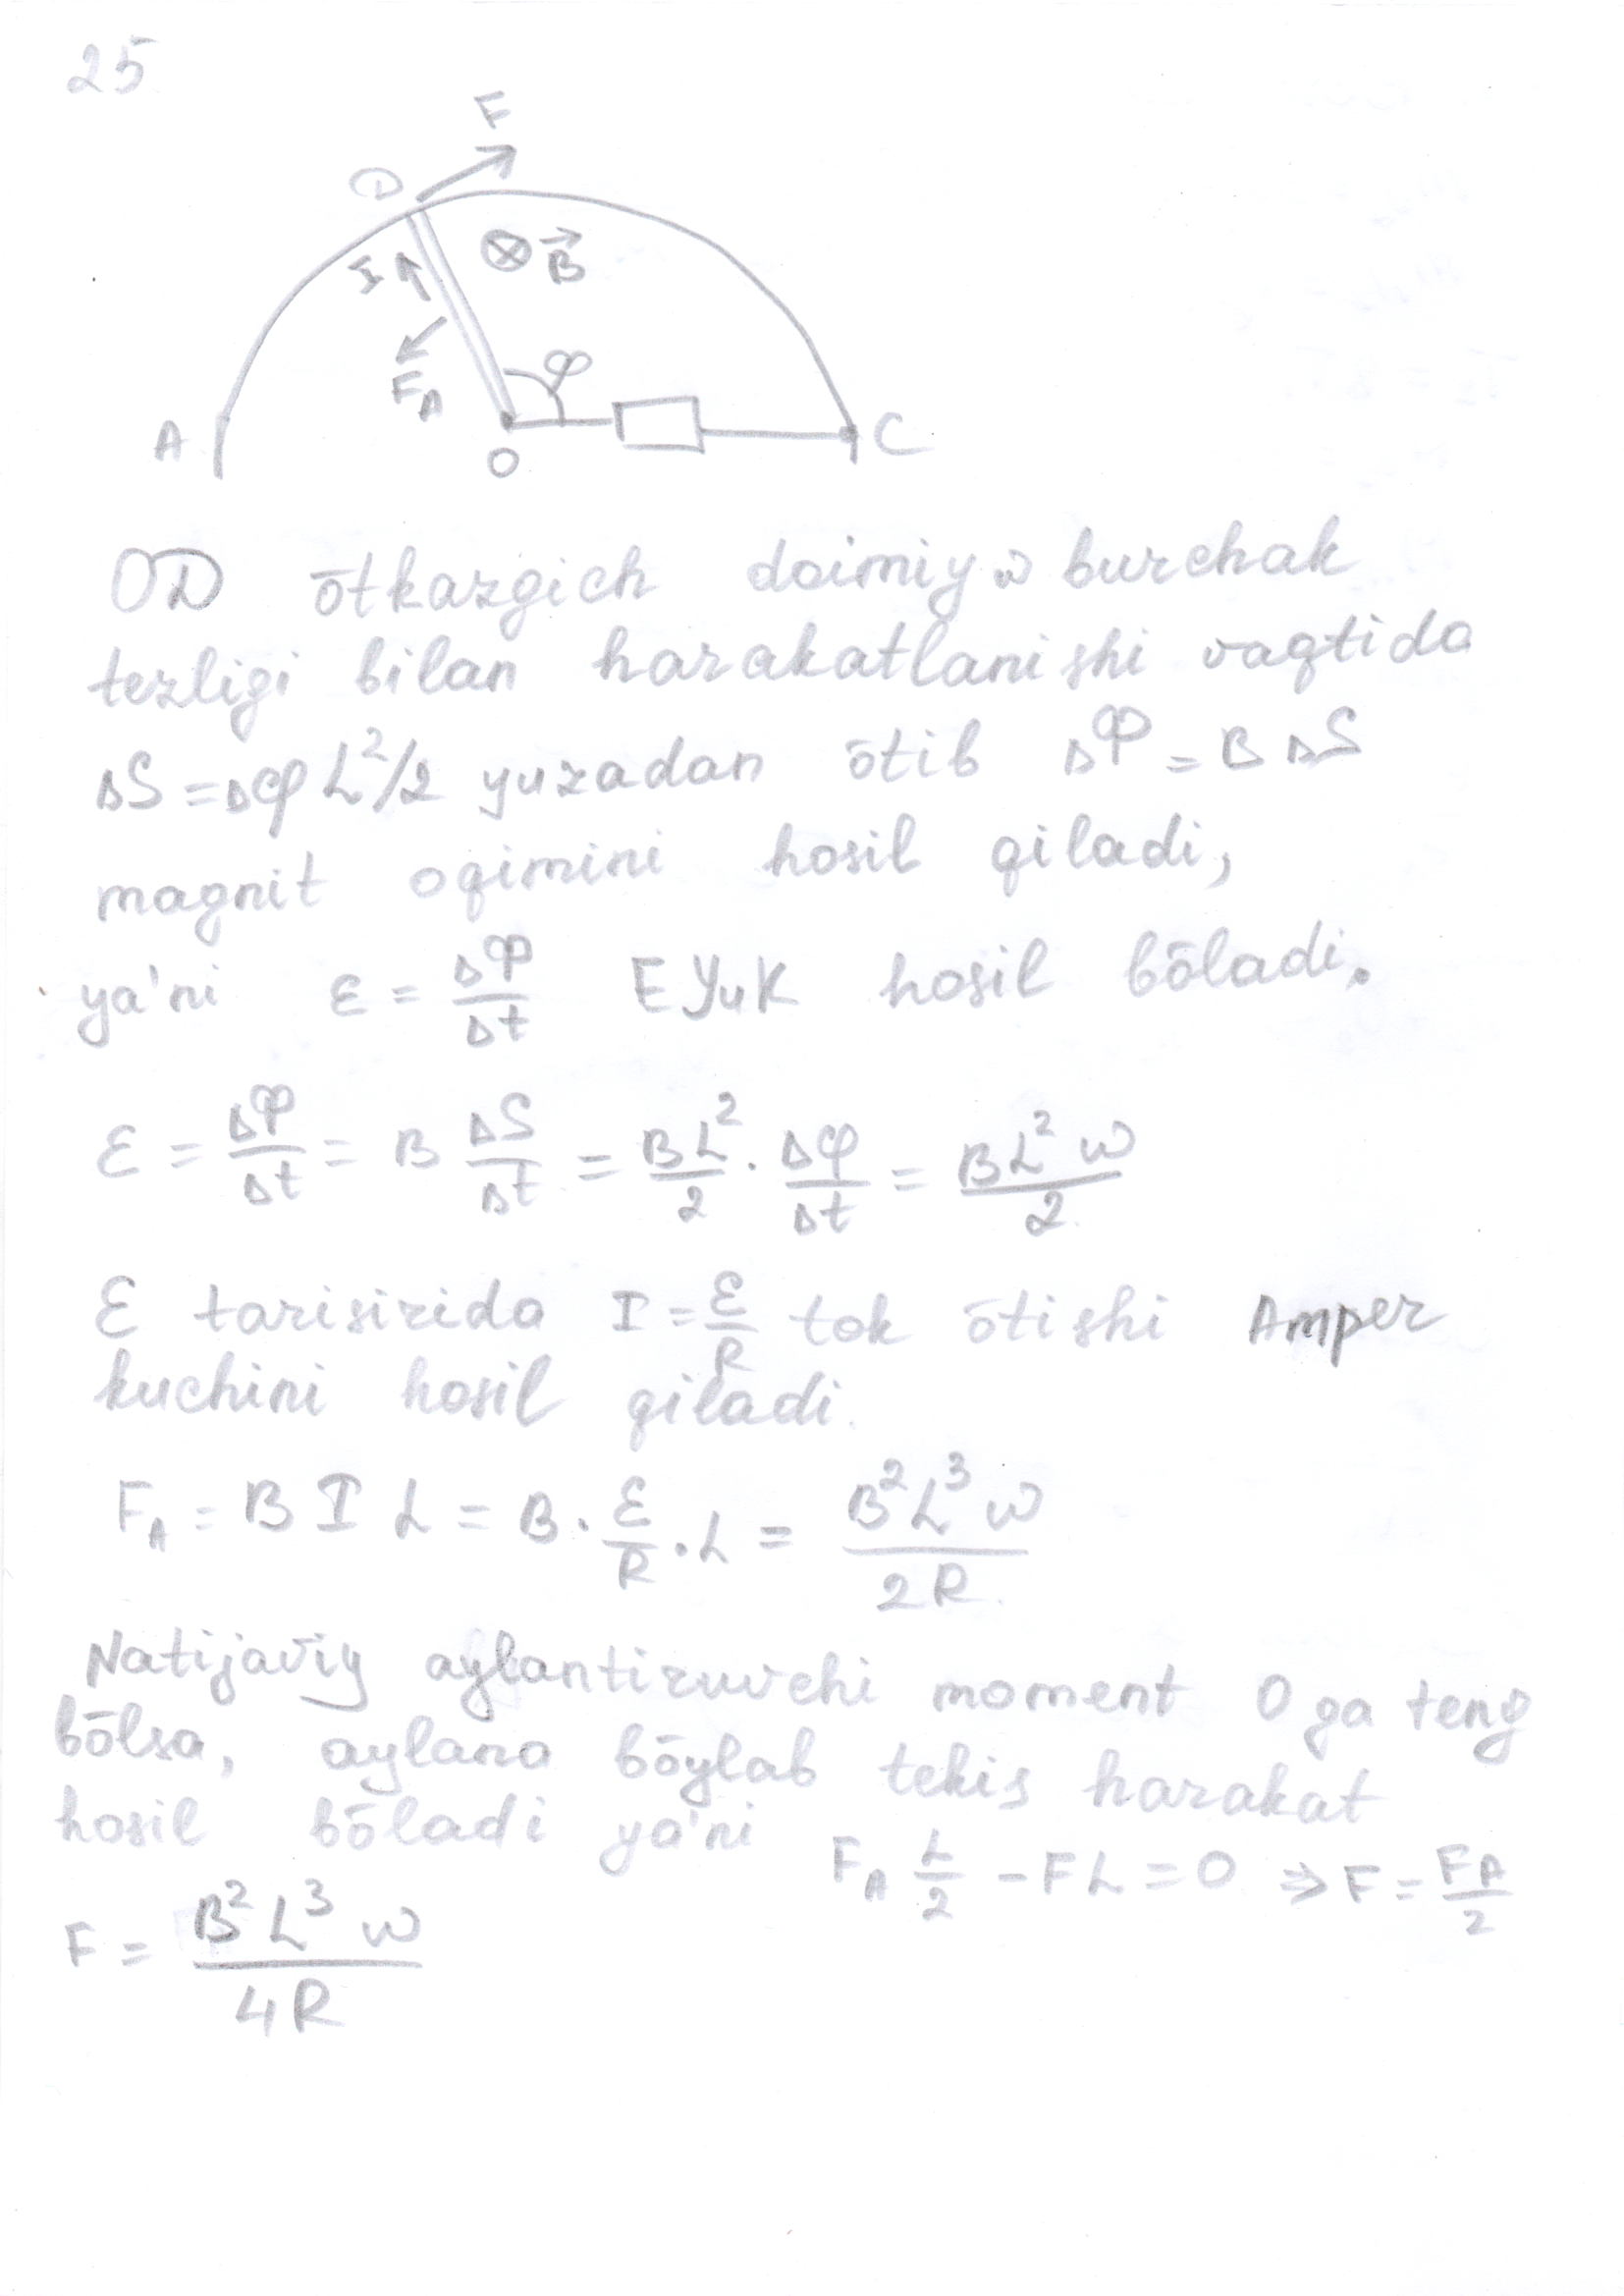 25
F
D
I
⊗ B⃗
F_A
φ
A
O
C
OD ōtkazgich doimiy ω burchak
tezligi bilan harakatlanishi vaqtida
ΔS = Δφ L²/2 yuzadan ōtib ΔΦ = B ΔS
magnit oqimini hosil qiladi,
ya'ni ε = ΔΦ/Δt EYuK hosil bōladi.
ε = ΔΦ/Δt = B ΔS/Δt = BL²/2 · Δφ/Δt = BL²ω/2
ε tarisirida I = ε/R tok ōtishi Amper
kuchini hosil qiladi.
F_A = B I L = B · ε/R · L = B²L³ω/2R
Natijaviy aylantiruvchi moment 0 ga teng
bōlsa, aylana bōylab tekis harakat
hosil bōladi ya'ni F_A L/2 - FL = 0 ⇒ F = F_A/2
F = B²L³ω/4R